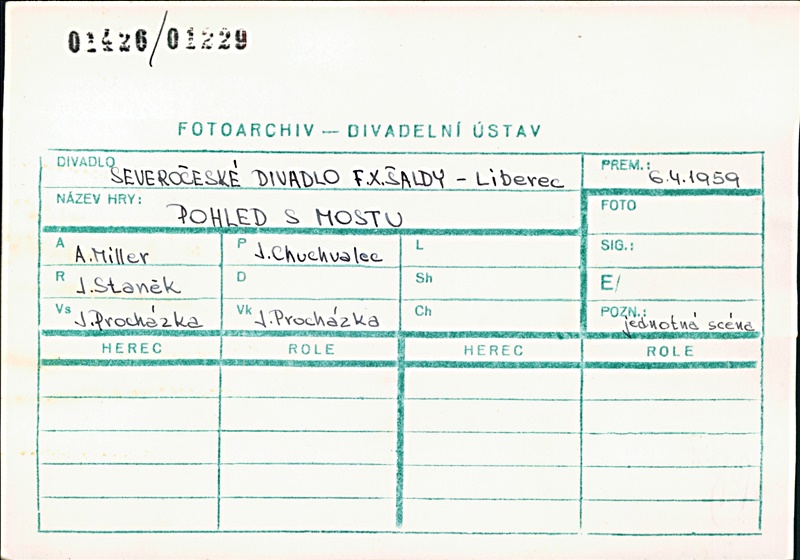 01426/01229
FOTOARCHIV — DIVADELNÍ ÚSTAV
DIVADLO SEVEROČESKÉ DIVADLO F.X.ŠALDY - Liberec
PREM.: 6.4.1959
NÁZEV HRY: POHLED S MOSTU
FOTO
A A.Miller P J.Chuchvalec L
SIG.:
R J.Staněk D Sh
E/
Vs J.Procházka Vk J.Procházka Ch
POZN.: jednotná scéna
HEREC ROLE HEREC ROLE